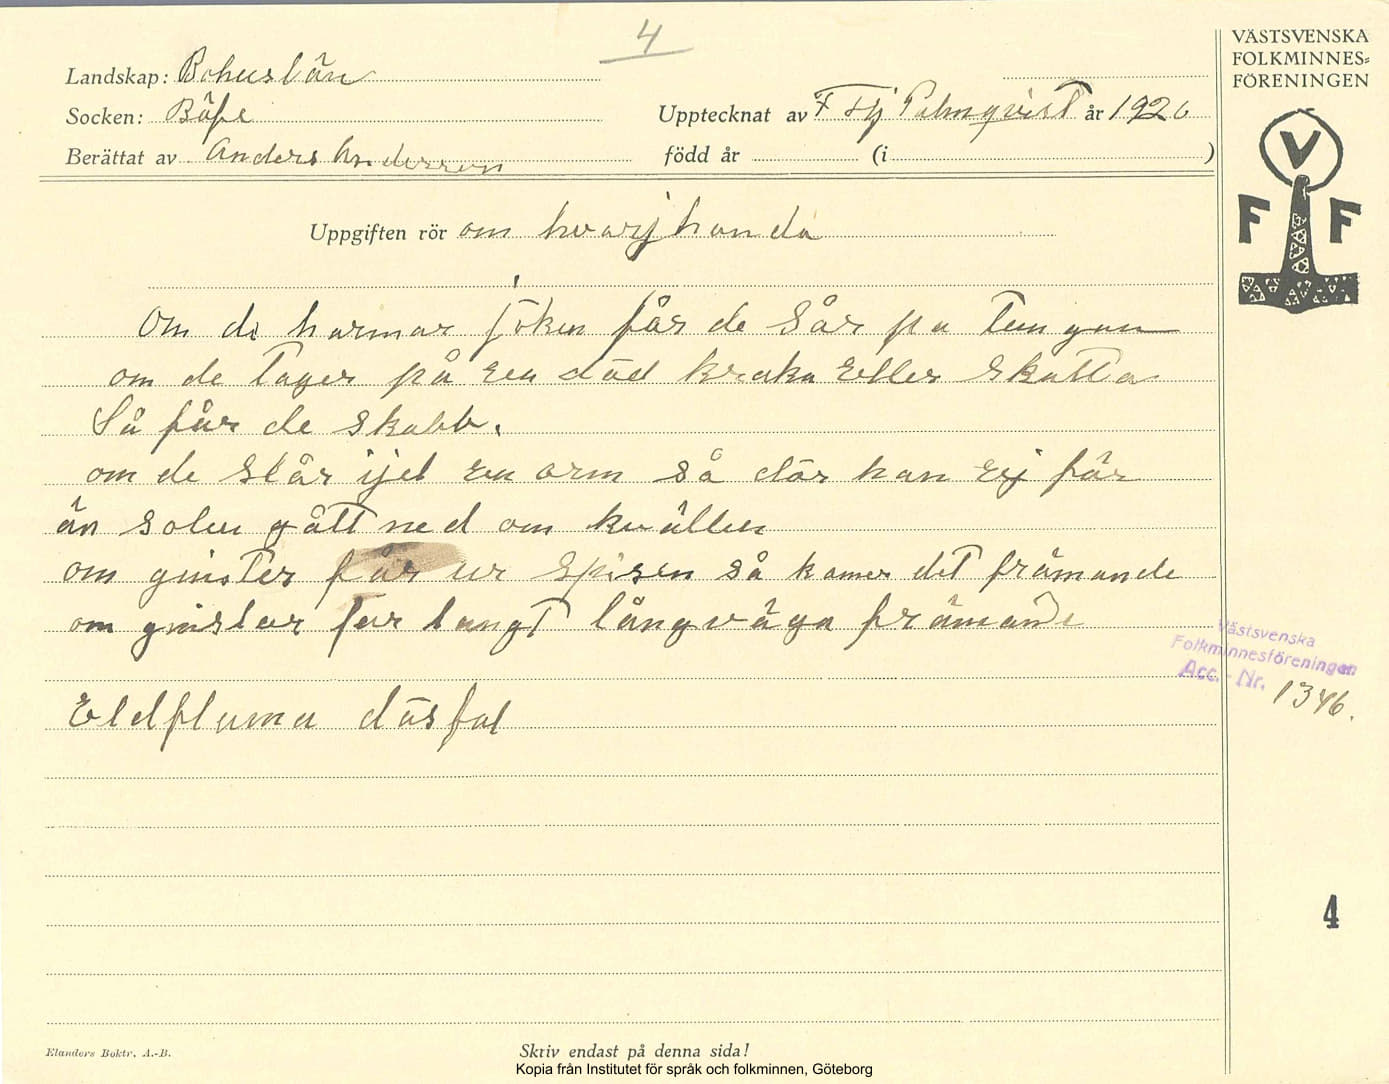 4
VÄSTSVENSKA
FOLKMINNES-
FÖRENINGEN
Landskap: Bohuslän
Socken: Bäfe
Upptecknat av F Hj Palmqvist år 1926
Berättat av Anders Andersson
född år (i )
V
F F
Uppgiften rör om hvarjhanda
Om de harmar jöken får de Sår pa Tungan
om de Tager på en död kraka Eller Skatta
Så får de skabb.
om de Slår ijel en orm så dör han Ej för
än Solen gått ned om kvällen
om gnister far ur Spisen så komer det främande
om gnister far langt långväga främande
Eldfluma dösfal
Västsvenska
Folkminnesföreningen
Acc.-Nr. 1346.
4
Elanders Boktr. A.-B.
Skriv endast på denna sida!
Kopia från Institutet för språk och folkminnen, Göteborg